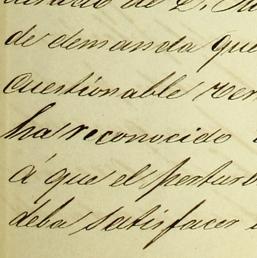 de D.
de demanda que
cuestionable
ha reconocido
á que el
deba satisfacer